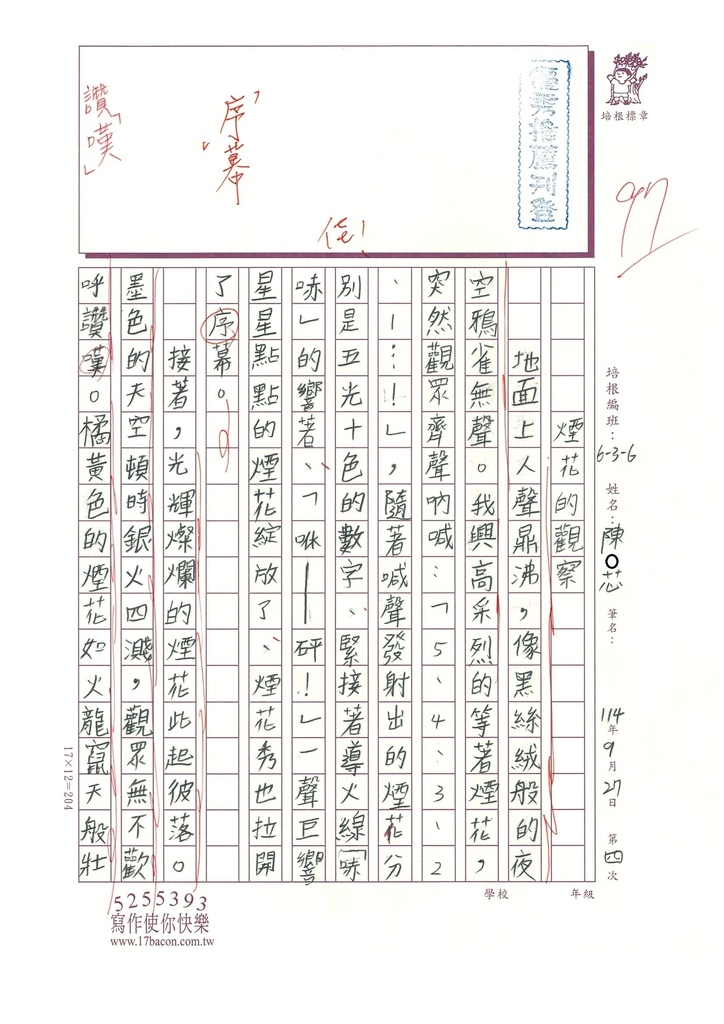 培根標章
97
優秀推薦刊登
「序幕」
佳！
讚「嘆」
培根編班：6-3-6 姓名：陳O芯 筆名：
114年9月27日 第四次
煙花的觀察
地面上人聲鼎沸，像黑絲絨般的夜
空鴉雀無聲。我興高采烈的等著煙花，
突然觀眾齊聲吶喊：「5、4、3、2
、1…！」，隨著喊聲發射出的煙花分
別是五光十色的數字、緊接著導火線「咻
咻」的響著、「咻——砰！」一聲巨響
星星點點的煙花綻放了、煙花秀也拉開
了序幕。
接著，光輝燦爛的煙花此起彼落。
墨色的天空頓時銀火四濺，觀眾無不歡
呼讚嘆。橘黃色的煙花如火龍竄天般壯
17×12=204
學校 年級
5255393
寫作使你快樂
www.17bacon.com.tw